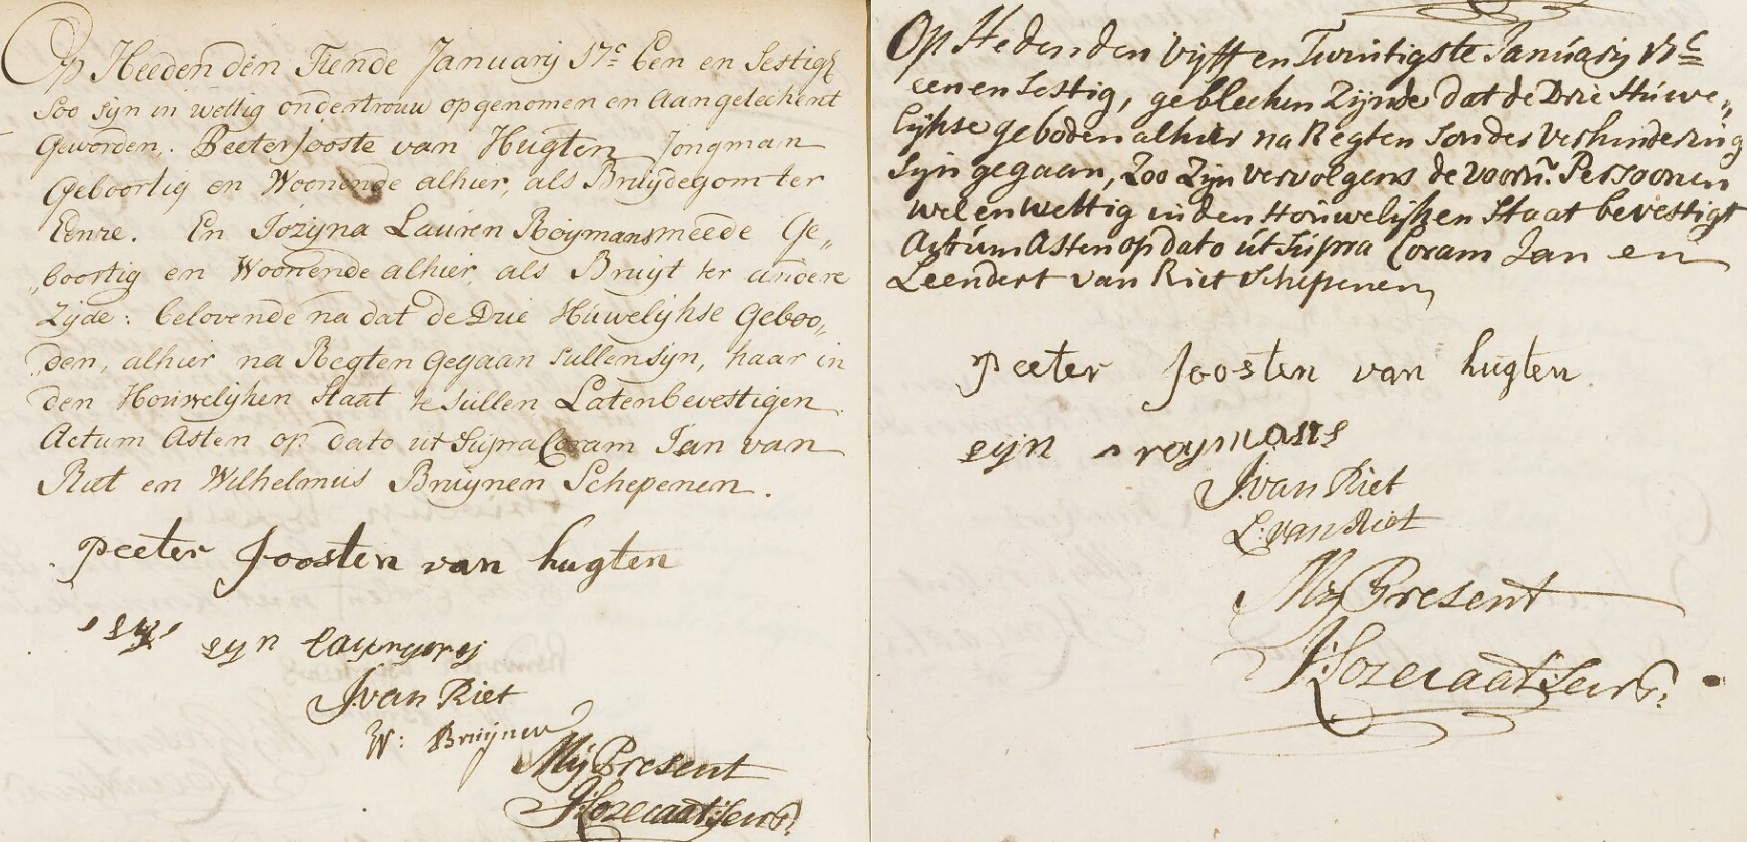 Op Heeden den Tiende Januarij 17c Een en Sestigh
Soo sijn in wettig ondertrouw opgenomen en Aangeteekent
Geworden, Peeter Jooste van Hugten Jongman
Geboortig en Woonende alhier, als Bruijdegom ter
Eenre. En Jozijna Lauren Roijmans meede Ge„
„boortig en Woonende alhier, als Bruijt ter andere
Zijde: belovende na dat de Drie Huwelijkse Geboo„
„den, alhier na Regten Gegaan sullen sijn, haar in
den Houwelijken Staat te sullen Laten bevestigen
Actum Asten op dato ut Supra Coram Jan van
Riet en Wilhelmus Bruijnen Schepenen.
Peeter Joosten van hugten
sijn
J. van Riet
W: Bruijnen
Mij Present
Op Heden den Vijff en Twintigste Januarij 17c
een en Sestig, gebleeken Zijnde dat de Drie Huwe„
lijkse geboden alhier na Regten Sonder Verhindering
Sijn gegaan, Zoo Zijn vervolgens de voorn. Persoonen
wel en Wettig in den Houwelijken Staat bevestigt
Actum Asten op dato ut Supra Coram Jan en
Leendert van Riet Schepenen,
Peeter Joosten van hugten
sijn roymans
J. van Riet
L: van Riet
Mij Present